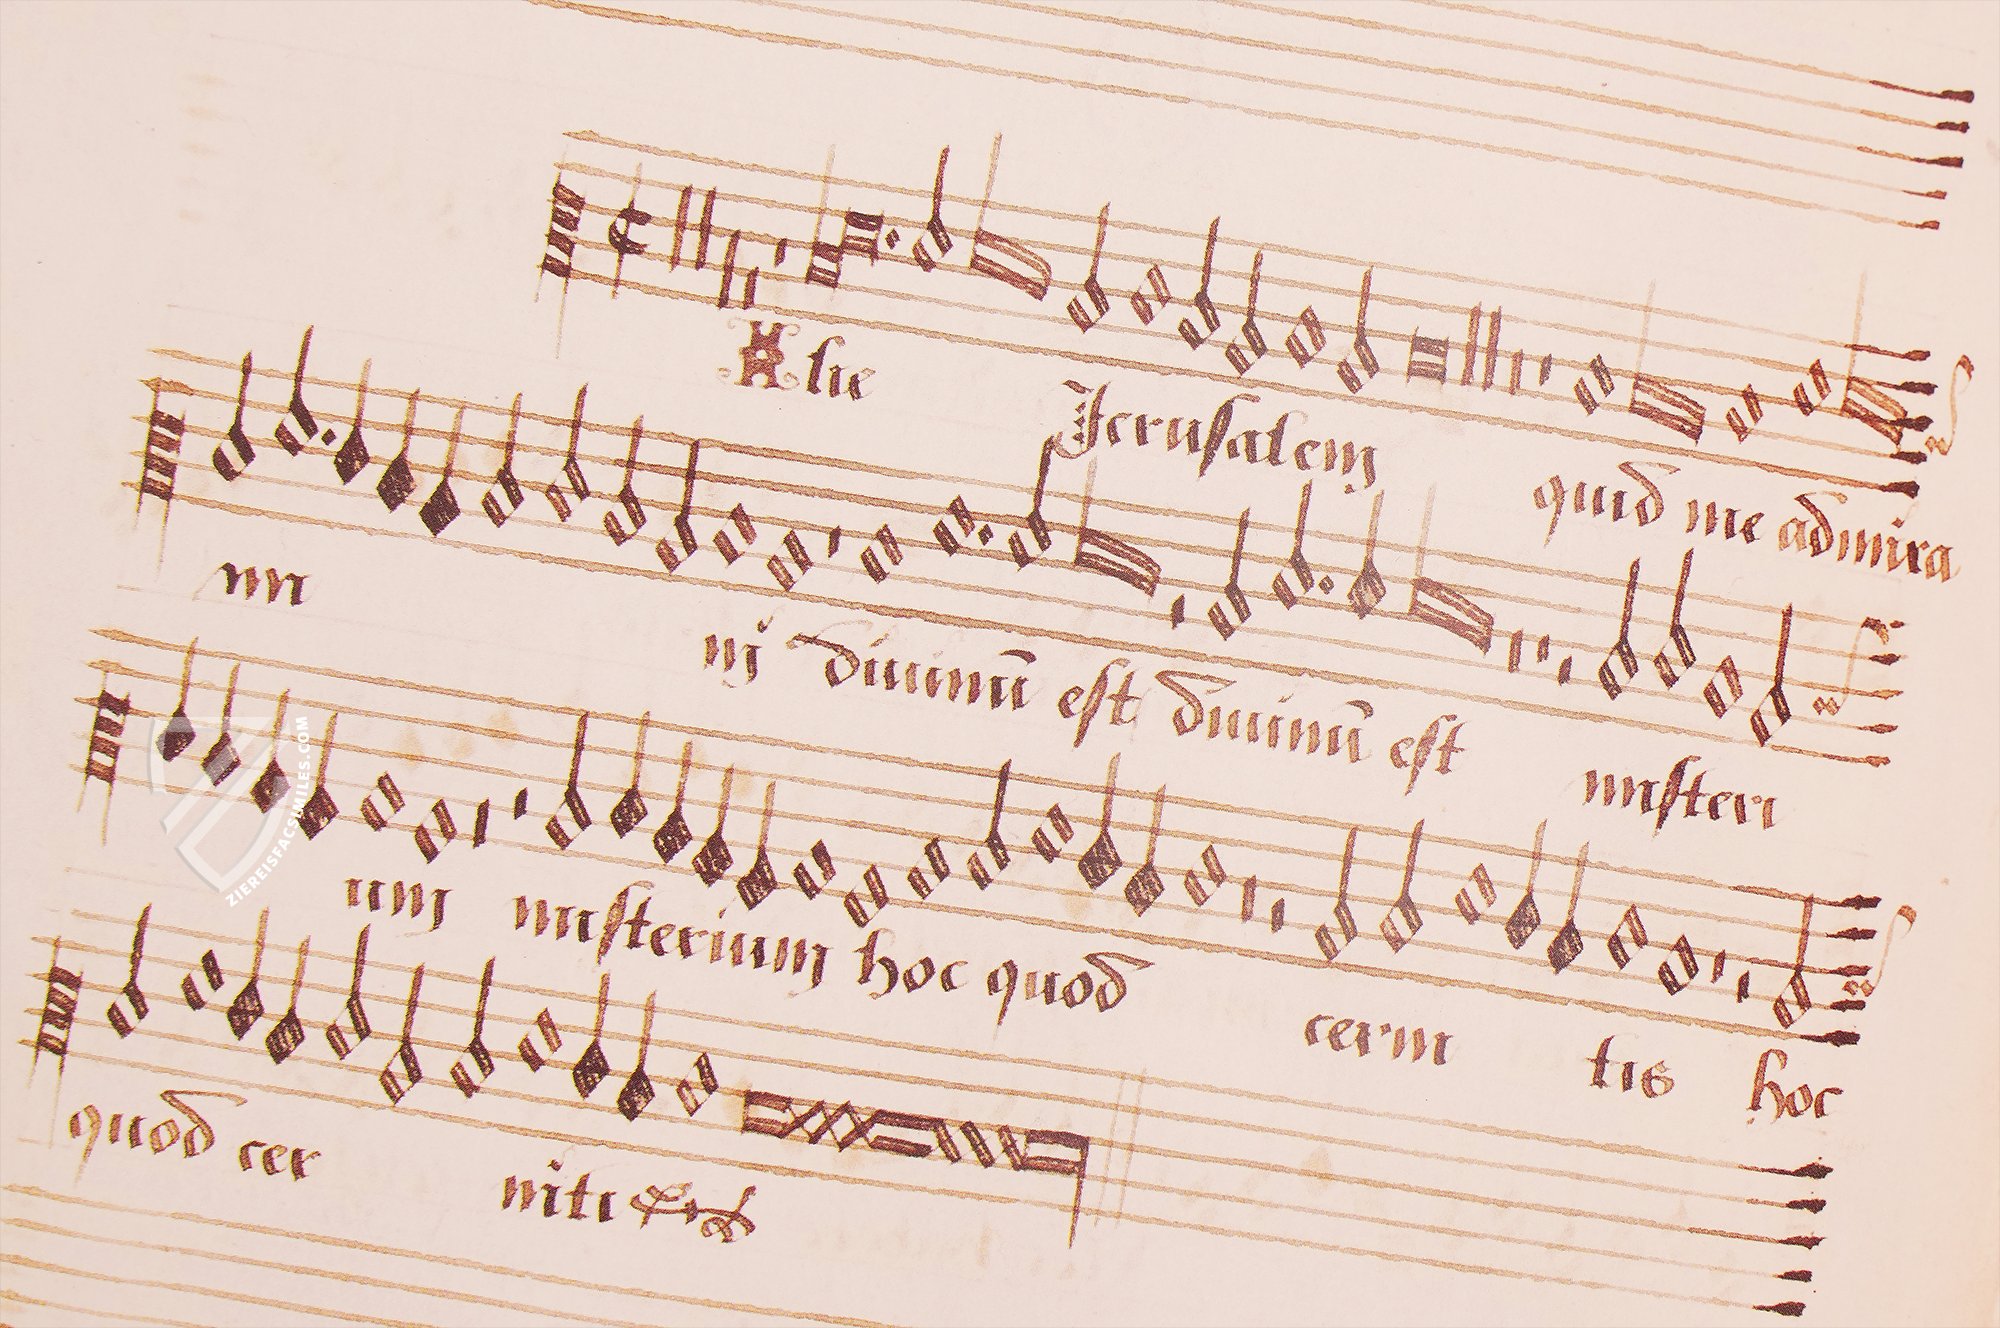 Filie Jerusalem quid me admira
mi
nj diuinū est diuinū est misteri
um misterium hoc quod cerni tis hoc
quod cer nitis
ZIEREISFACSIMILES.COM